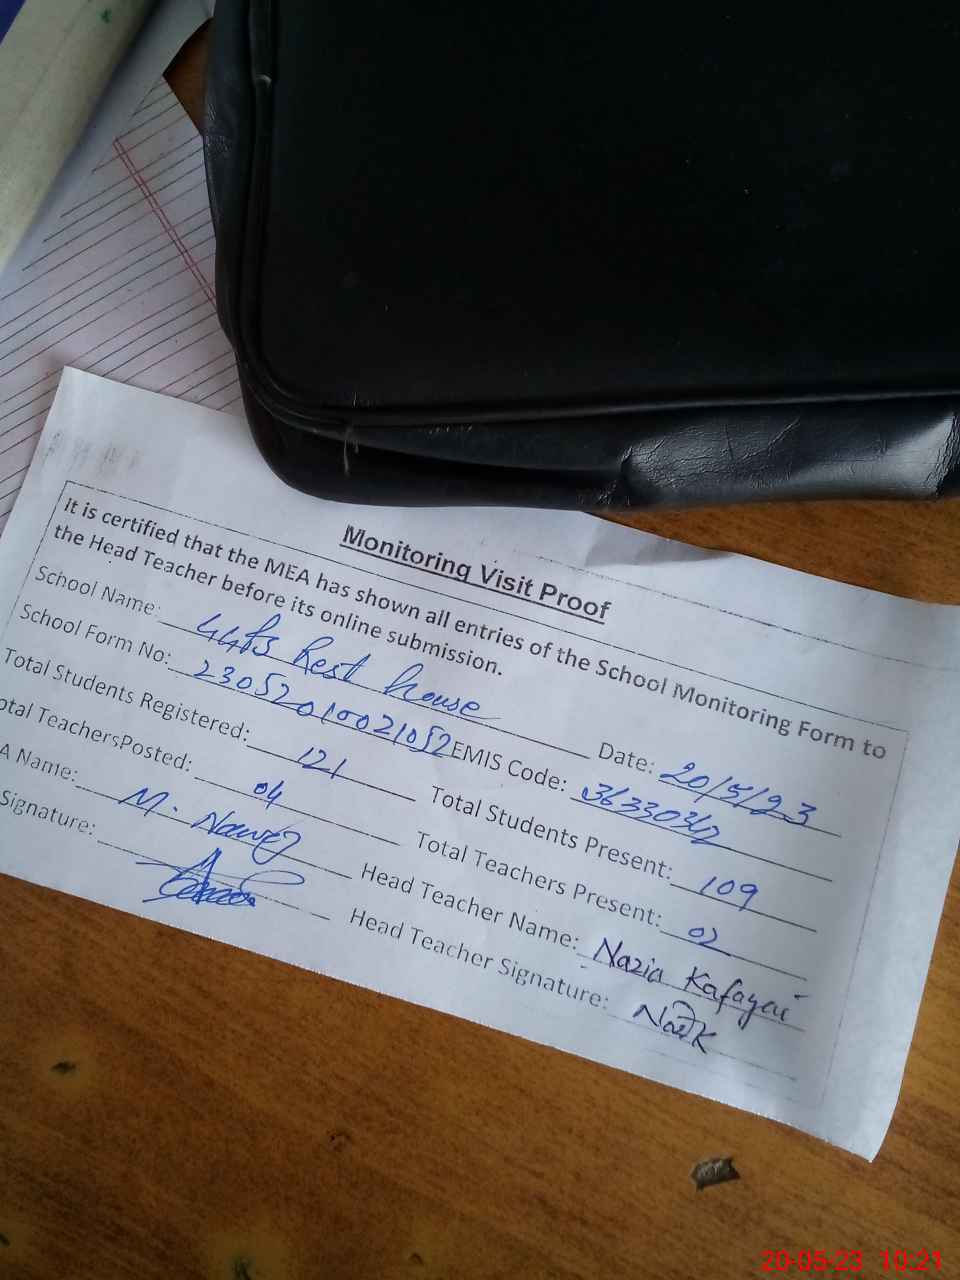 Monitoring Visit Proof
It is certified that the MEA has shown all entries of the School Monitoring Form to
the Head Teacher before its online submission.
School Name: Rest house Date: 20/5/23
School Form No: 23052010021052 EMIS Code: 36330342
Total Students Registered: 121 Total Students Present: 109
otal TeachersPosted: 04 Total Teachers Present: 02
A Name: M. Nawez Head Teacher Name: Nazia Kafayai
Signature: Head Teacher Signature:
20-05-23 10:21